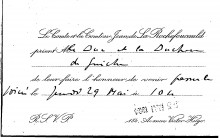 Le Comte et la Comtesse Jean de La Rochefoucauld
prient Mr le Duc et la Duchesse
de Guiche
de leur faire l'honneur de venir passer la
soirée le Jeudi 29 Mai à 10h
R.S.V.P.
Avenue Victor-Hugo